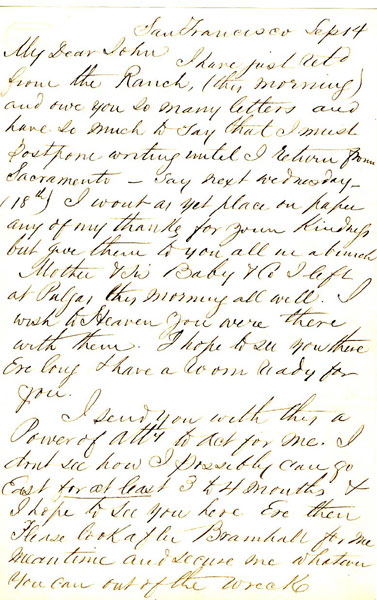 San Francisco Sep 14
My Dear John
I have just retd
from the Ranch, (this morning)
and owe you so many letters and
have so much to say that I must
postpone writing until I return from
Sacramento - say next Wednesday -
(18th) I wont as yet place on paper
any of my thanks for your kindness
but give them to you all in a bunch
Mother & Baby & I left
at Pulgas this morning all well. I
wish to Heaven you were there
with them. I hope to see you there
Ere long I have a room ready for
you.
I send you with this a
Power of Atty to act for me. I
dont see how I possibly can go
East for at least 3 to 4 months &
I hope to see you here Ere then
Please look after Bramhall for me
meantime and secure me whatever
you can out of the wreck